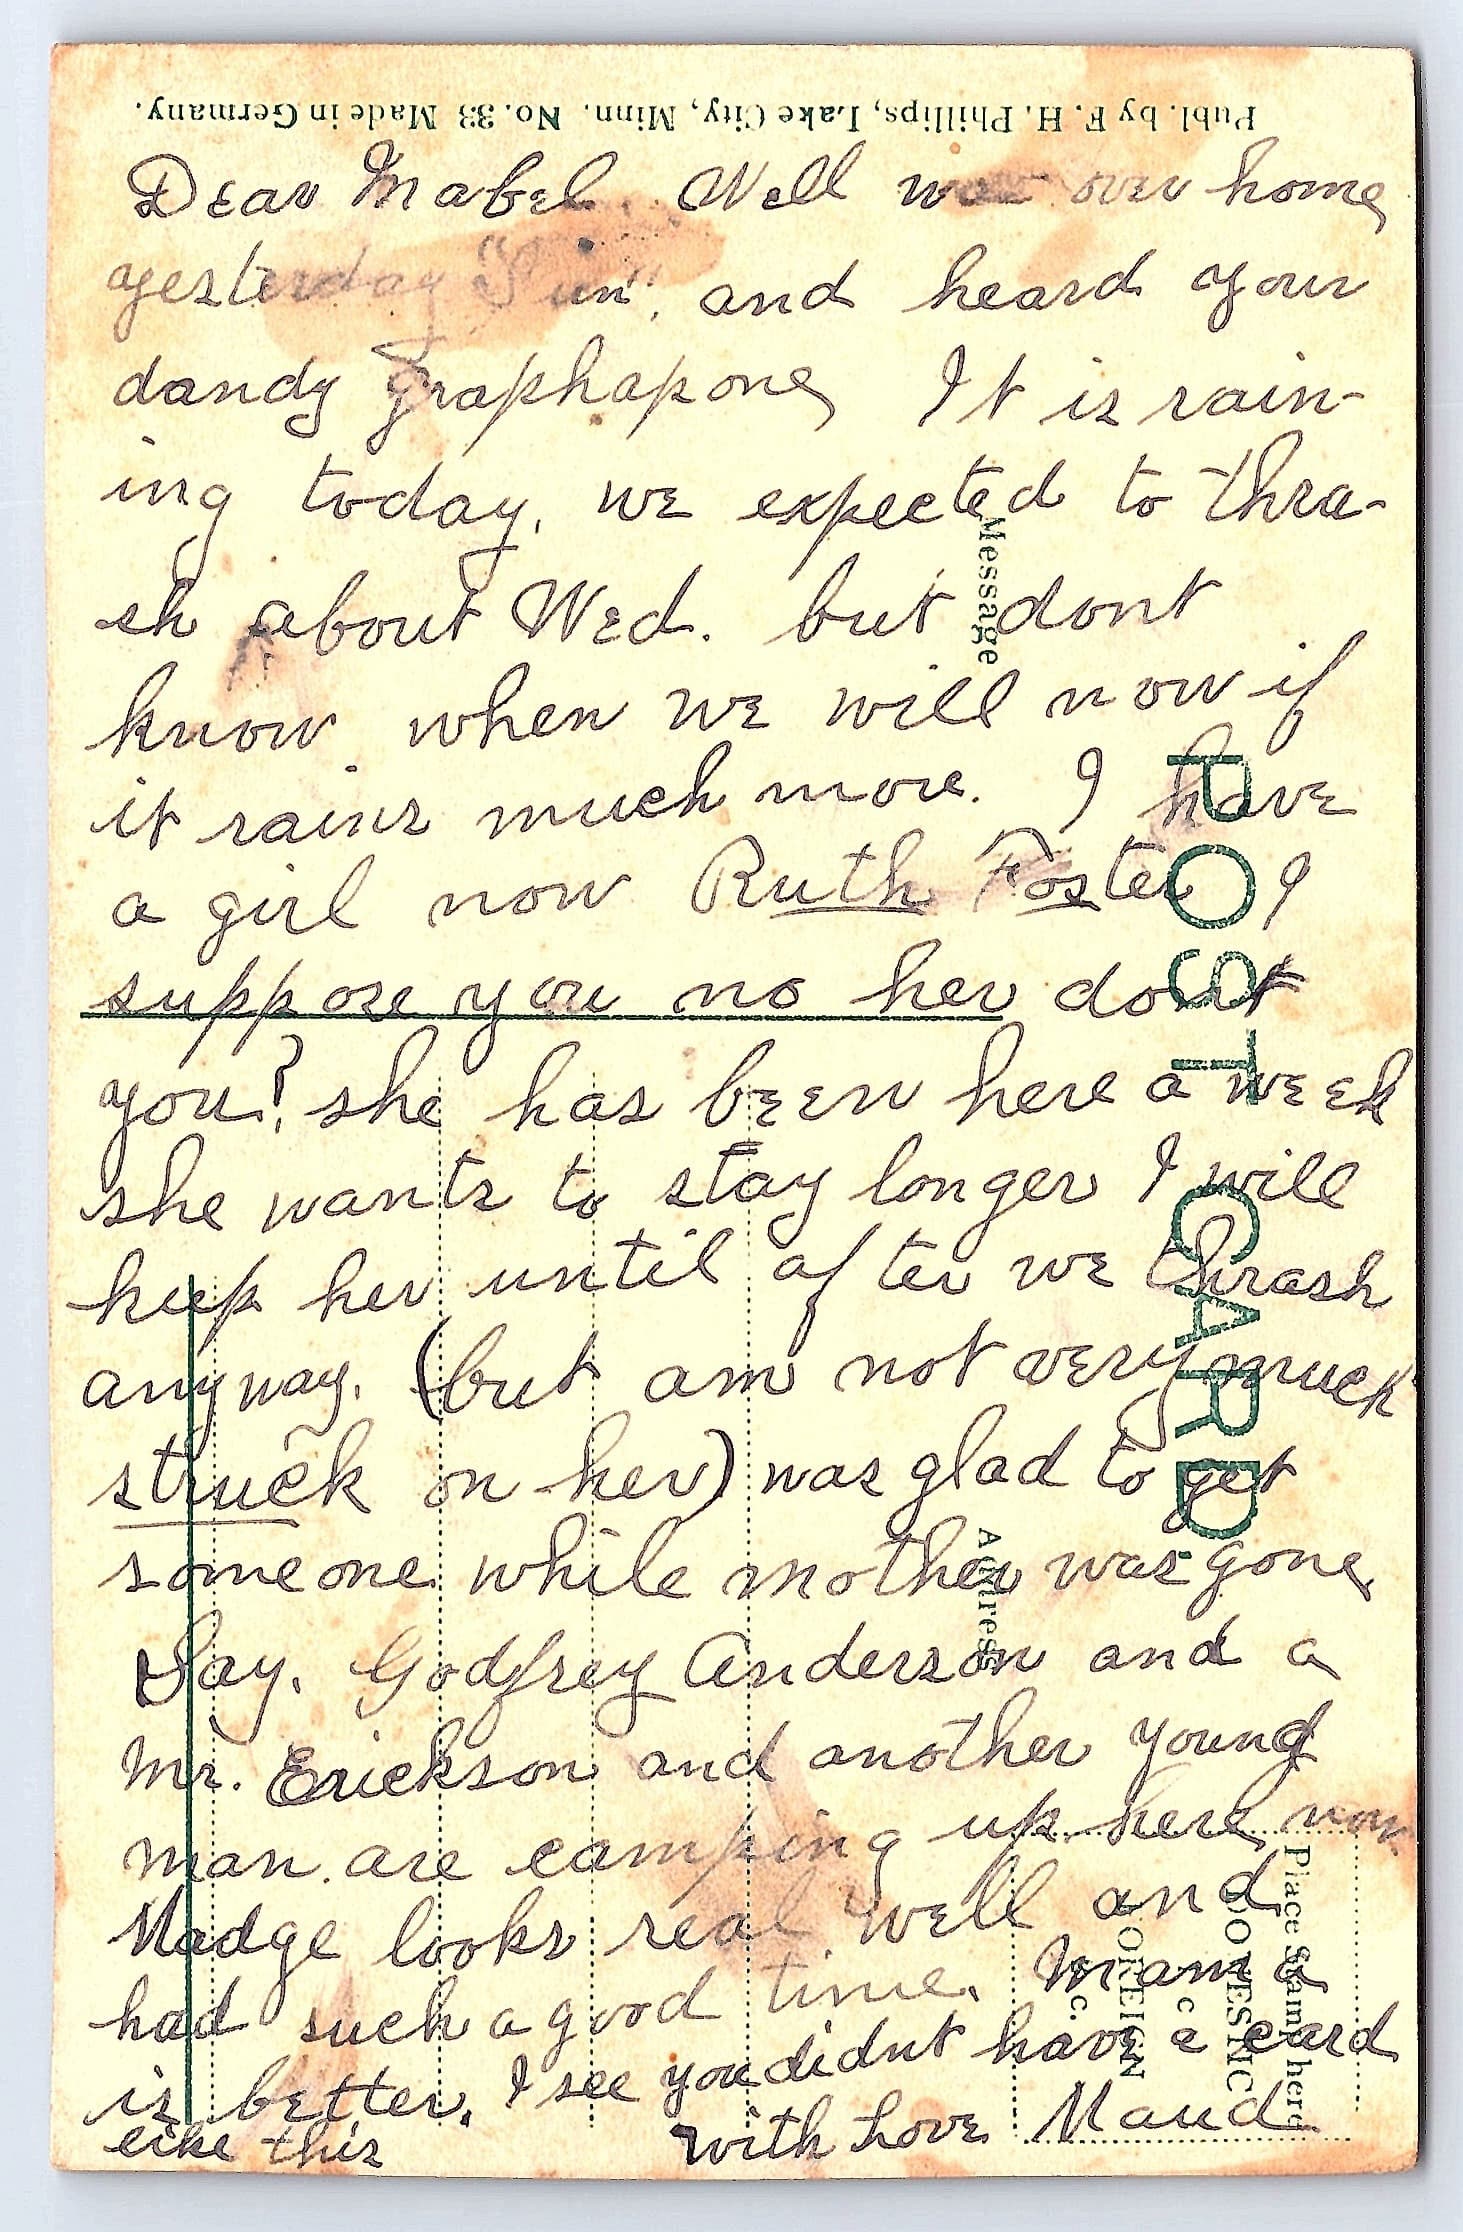 Publ. by F. H. Phillips, Lake City, Minn. No. 33 Made in Germany.
Dear Mabel. Well was over home
yesterday "Sun", and heard your
dandy graphapone It is rain-
ing today, we expected to thra-
sh about Wed. but dont
know when we will now if
it rains much more. I have
a girl now Ruth Foster I
suppose you no her dont
you? she has been here a week
she wants to stay longer I will
keep her until after we thrash
anyway. (but am not very much
struck on her) was glad to get
someone while mother was gone,
Say, Godfrey Anderson and a
Mr. Erickson and another young
man are camping up here now
Madge looks real well and
had such a good time. Mama
is better. I see you didnt have a card
like this with Love Maud
Message
POST CARD
Address
Place Stamp here
DOMESTIC
FOREIGN